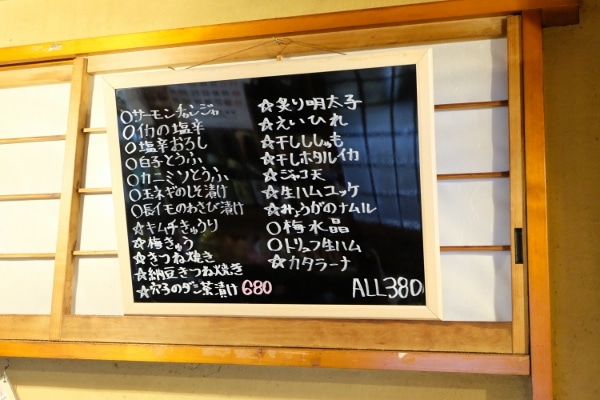 ○サーモンチャンジャ
○イカの塩辛
○塩辛おろし
○白子とうふ
○カニミソとうふ
○玉ネギのしそ漬け
○長イモのわさび漬け
☆キムチきゅうり
☆梅きゅう
☆きつね焼き
☆納豆きつね焼き
☆穴子のダシ茶漬け 680
☆炙り明太子
☆えいひれ
☆干しししゃも
☆干しホタルイカ
☆ジャコ天
☆生ハムユッケ
☆みょうがのナムル
○梅水晶
○トリュフ生ハム
☆カタラーナ
ALL380